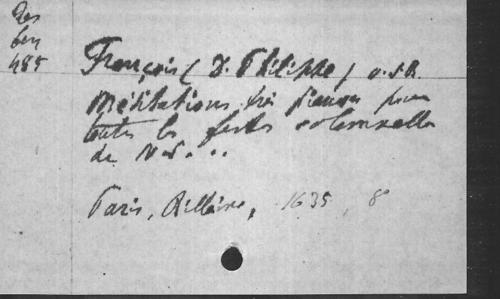 Res
ben
485
François (D. Philippe) o.s.B.
Méditations très pieuses pour
toutes les festes solennelles
de N.S. ...
Paris, Billaine, 1635, 8°